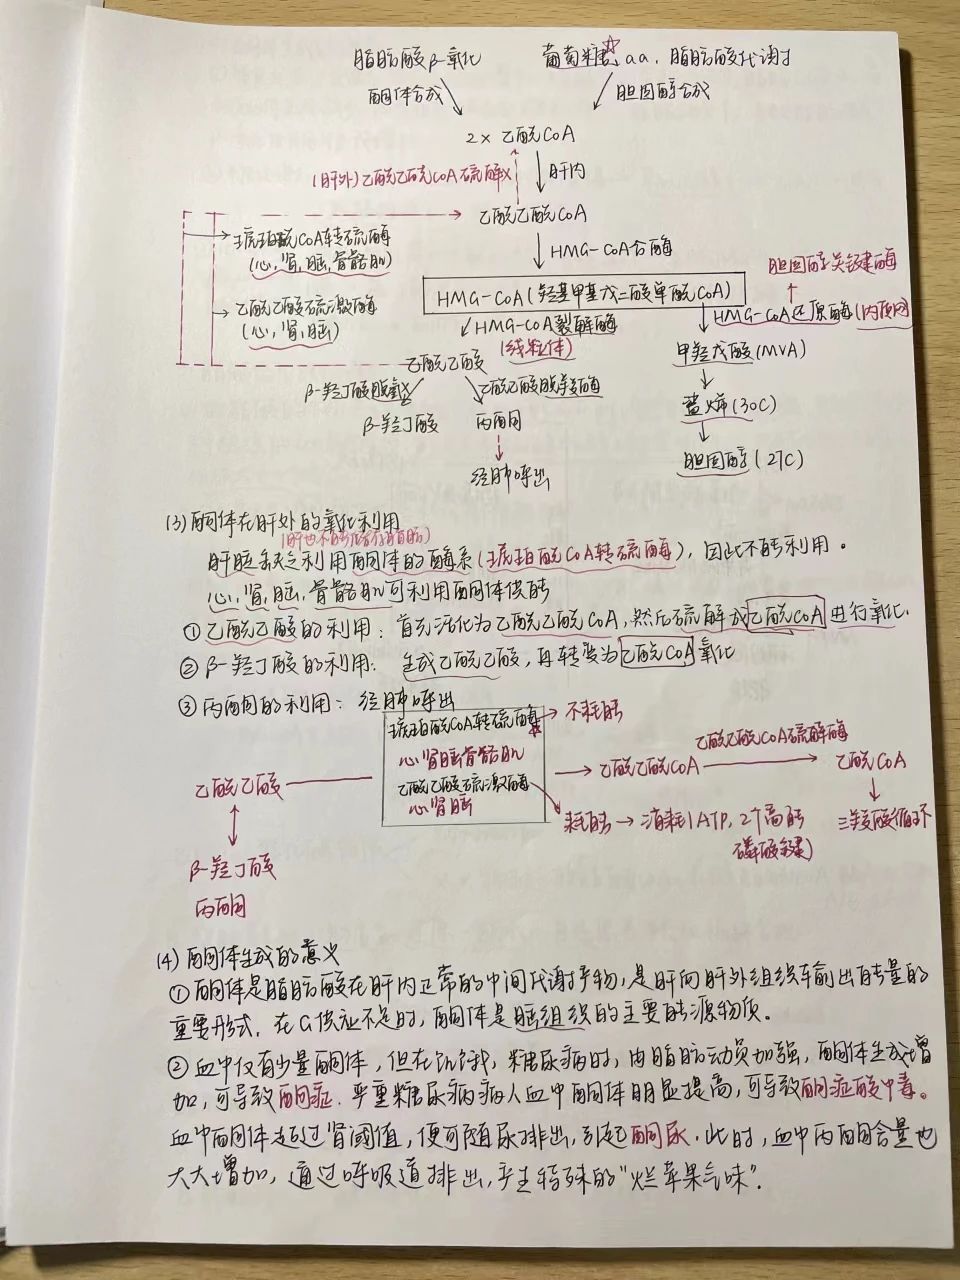 脂肪酸β-氧化 葡萄糖☆、aa、脂肪酸代谢
酮体合成 胆固醇合成
2× 乙酰CoA
(肝外)乙酰乙酰CoA硫解 肝内
乙酰乙酰CoA
琥珀酰CoA转硫酶
(心,肾,脑,骨骼肌)
HMG-CoA合酶
胆固醇关键酶
乙酰乙酸硫激酶
(心,肾,脑)
HMG-CoA(羟基甲基戊二酸单酰CoA)
HMG-CoA还原酶(内质网)
HMG-CoA裂解酶
(线粒体)
甲羟戊酸(MVA)
乙酰乙酸
β-羟丁酸脱氢 乙酰乙酸脱羧酶
β-羟丁酸 丙酮
鲨烯(30C)
经肺呼出
胆固醇(27C)
(3)酮体在肝外的氧化利用
肝脏缺乏利用酮体的酶系(琥珀酰CoA转硫酶),因此不能利用。
心,肾,脑,骨骼肌可利用酮体供能
①乙酰乙酸的利用:首先活化为乙酰乙酰CoA,然后硫解成乙酰CoA进行氧化.
②β-羟丁酸的利用: 生成乙酰乙酸,再转变为乙酰CoA氧化
③丙酮的利用: 经肺呼出
琥珀酰CoA转硫酶☆→不耗能
心肾脑骨骼肌
乙酰乙酰CoA硫解酶
乙酰乙酸 → 乙酰乙酰CoA → 乙酰CoA
乙酰乙酸硫激酶
心肾脑
耗能→消耗1ATP,2个高能
磷酸键)
三羧酸循环
β-羟丁酸
丙酮
(4)酮体生成的意义
①酮体是脂肪酸在肝内正常的中间代谢产物,是肝向肝外组织输出能量的
重要形式.在G供应不足时,酮体是脑组织的主要能源物质。
②血中仅有少量酮体,但在饥饿,糖尿病时,由脂肪动员加强,酮体生成增
加,可导致酮症.严重糖尿病病人血中酮体明显提高,可导致酮症酸中毒。
血中酮体超过肾阈值,便可随尿排出,引起酮尿.此时,血中丙酮含量也
大大增加,通过呼吸道排出,产生特殊的"烂苹果气味".